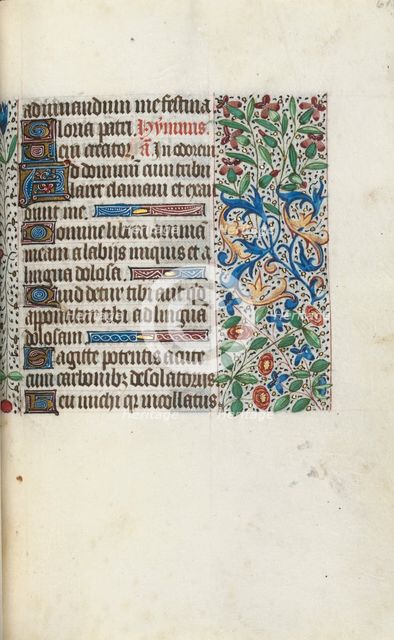 61
ad iuuandum me festina
Gloria patri. Hymnus.
Veni creator. a͞ In odorem
Ad dominum cum tribu
larer clamaui et exau
diuit me.
Domine libera animam
meam a labijs iniquis et a
lingua dolosa.
Quid detur tibi aut quid
apponatur tibi ad lingua
dolosam
Sagitte potentis acute
cum carbonibꝫ desolatorijs
Heu michi qr incollatus
heritage
heritage
heritage